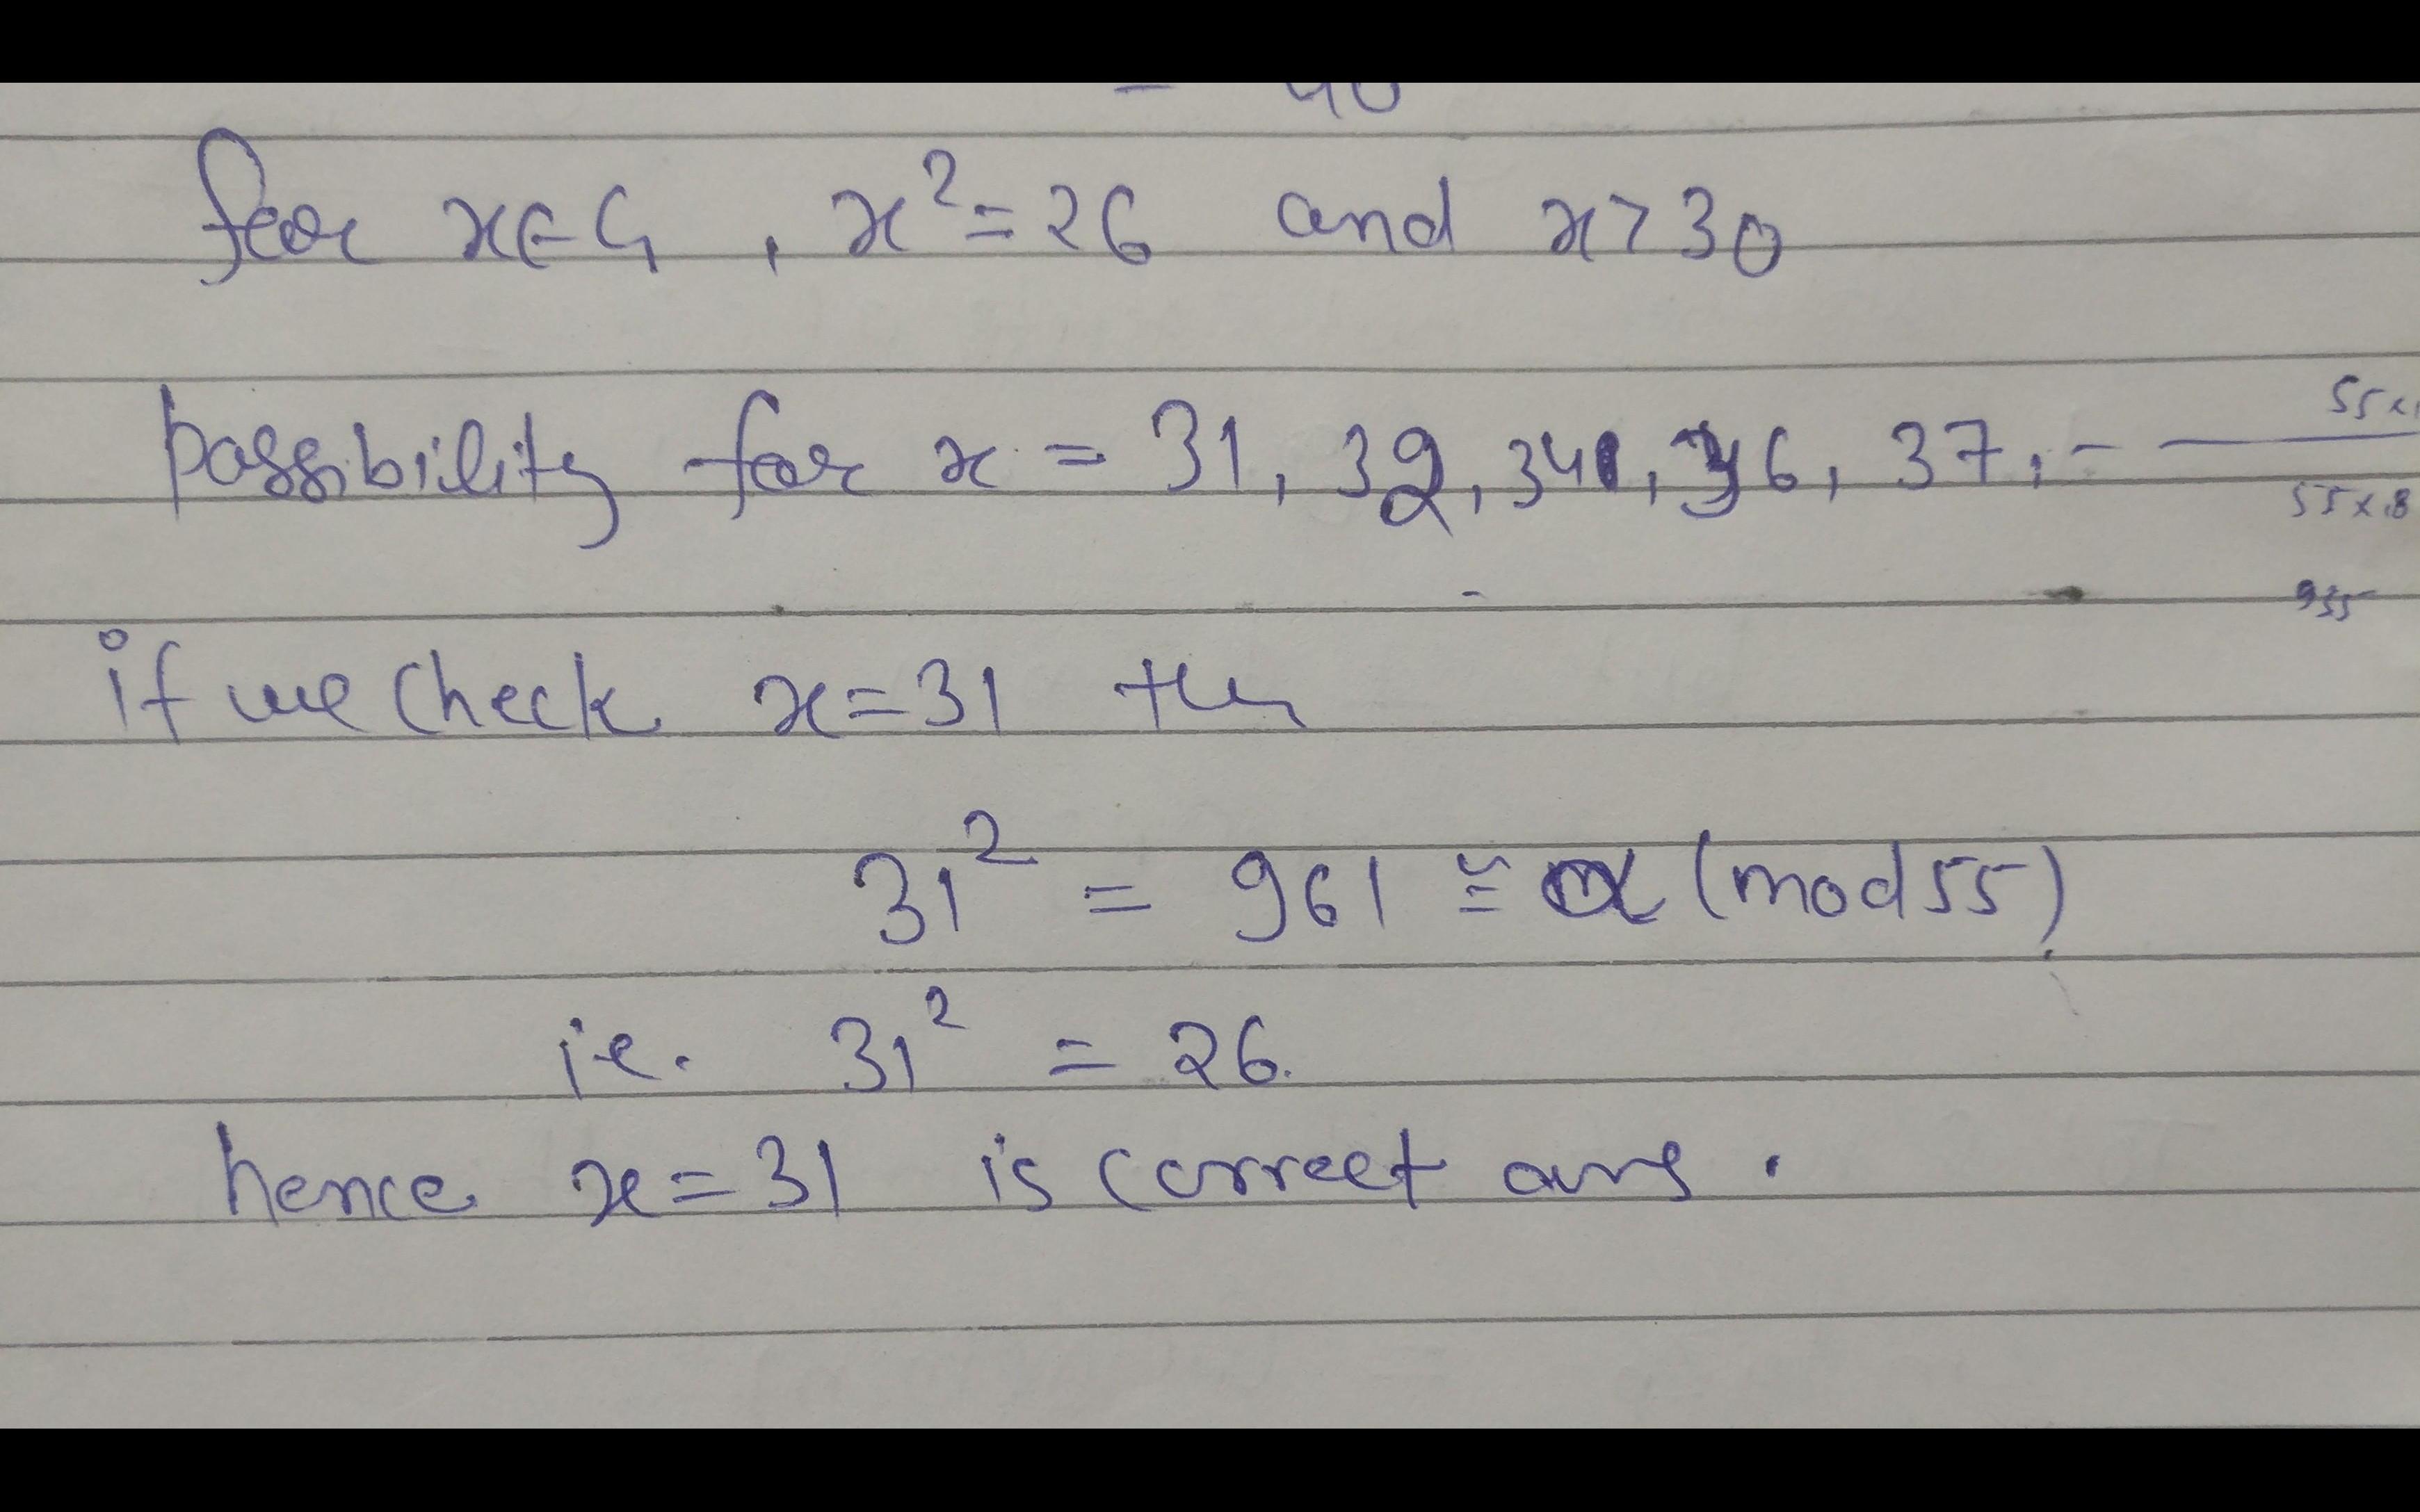 = 40
for x∈G, x² = 26 and x>30
55×
possibility for x = 31, 32, 34, 36, 37, - —
55×8
935
if we check x=31 then
31² = 961 ≅ (mod 55)
i.e. 31² = 26.
hence x=31 is correct ans.